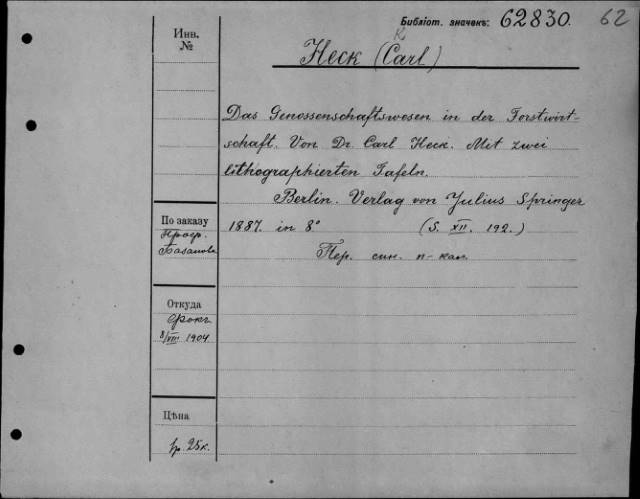 Библіот. значекъ: 62830. 62
Инв. №
K
Heck (Carl)
Das Genossenschaftswesen in der Forstwirt-
schaft. Von Dr. Carl Heck. Mit zwei
lithographierten Tafeln.
Berlin. Verlag von Julius Springer
1887. in 8° (S. XII. 192.)
Пер. син. п-кал.
По заказу
Проф.
Откуда
8/VIII 1904
Цѣна
25к.